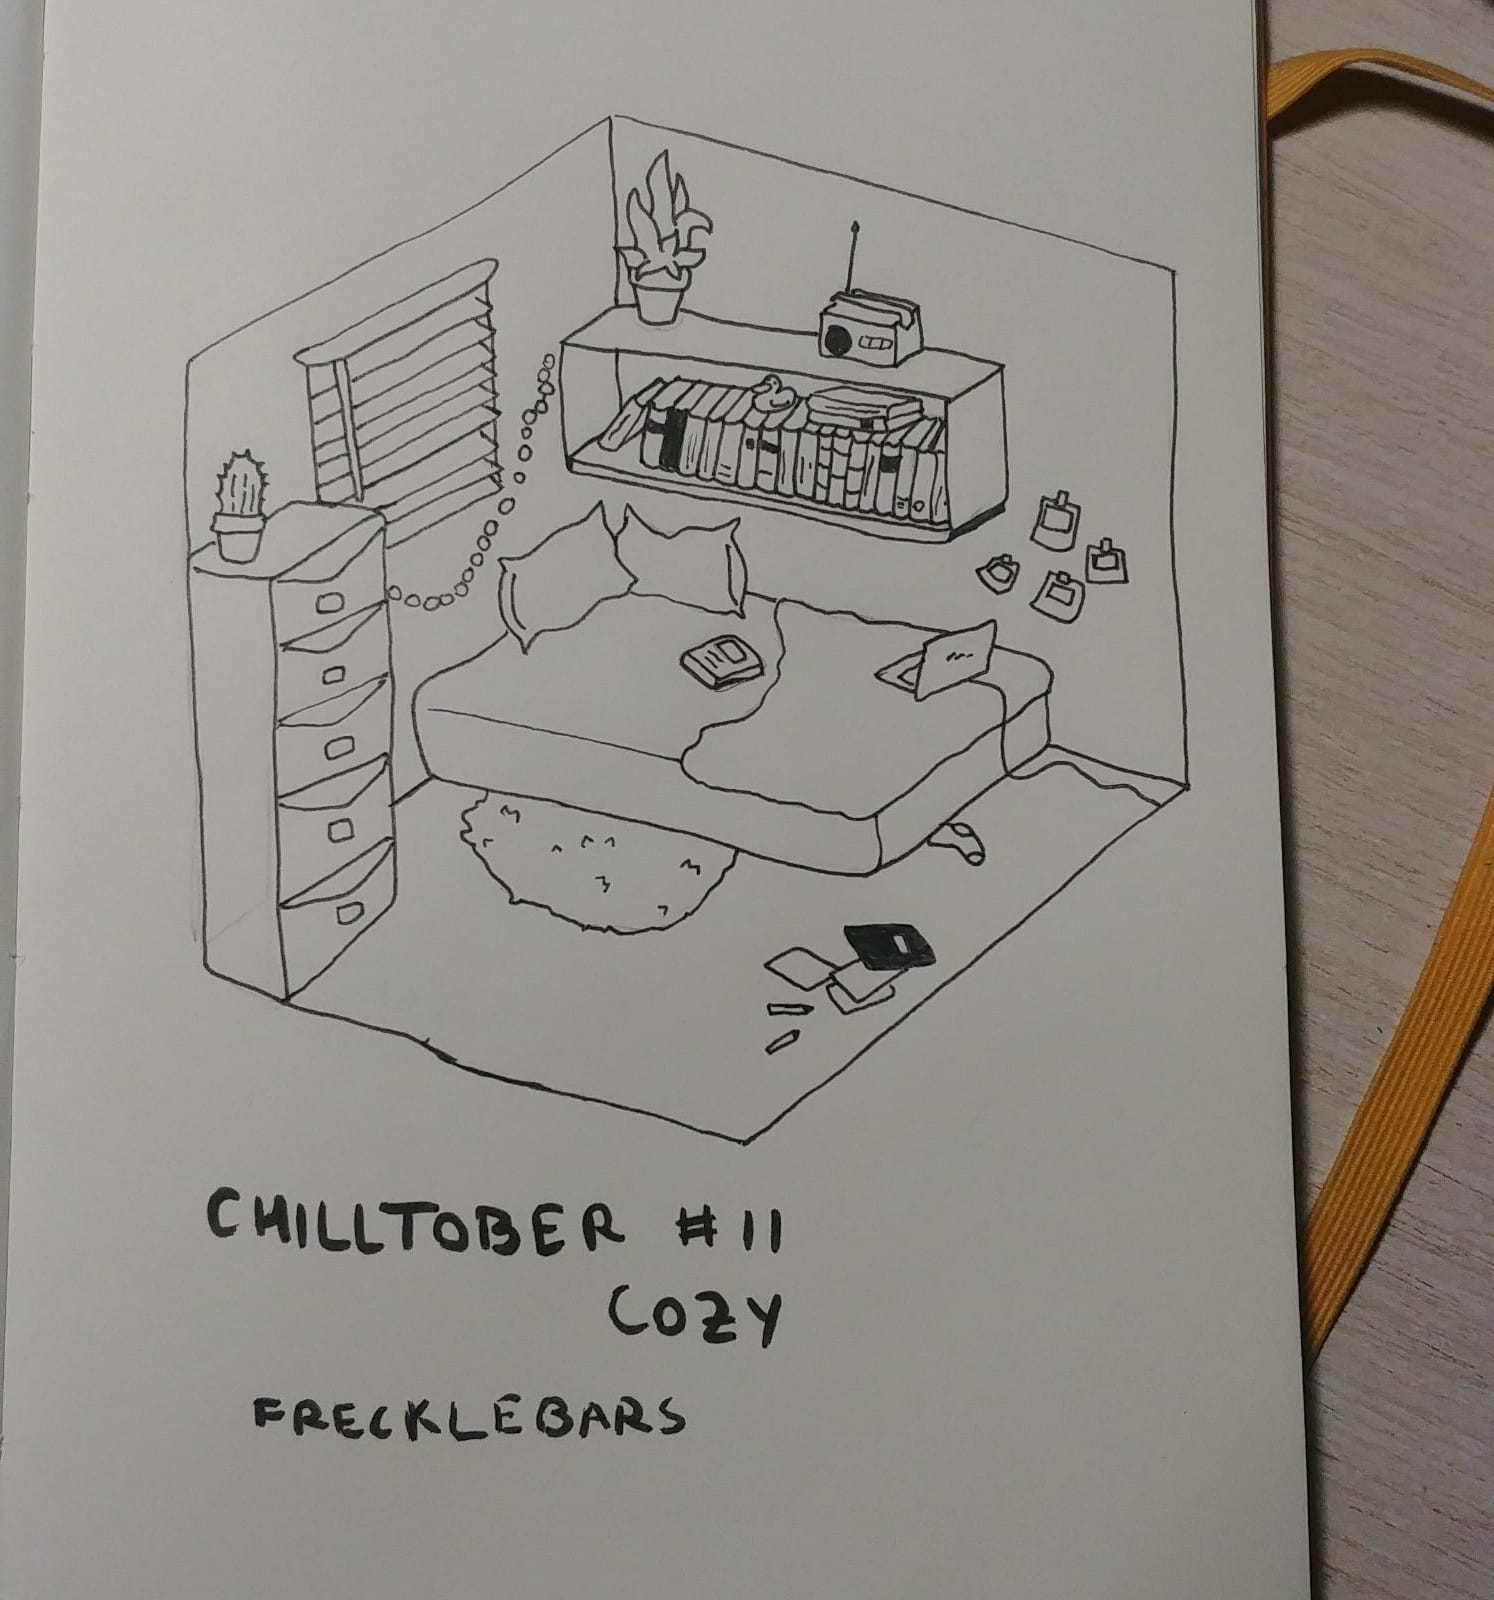 CHILLTOBER #11
COZY
FRECKLEBARS